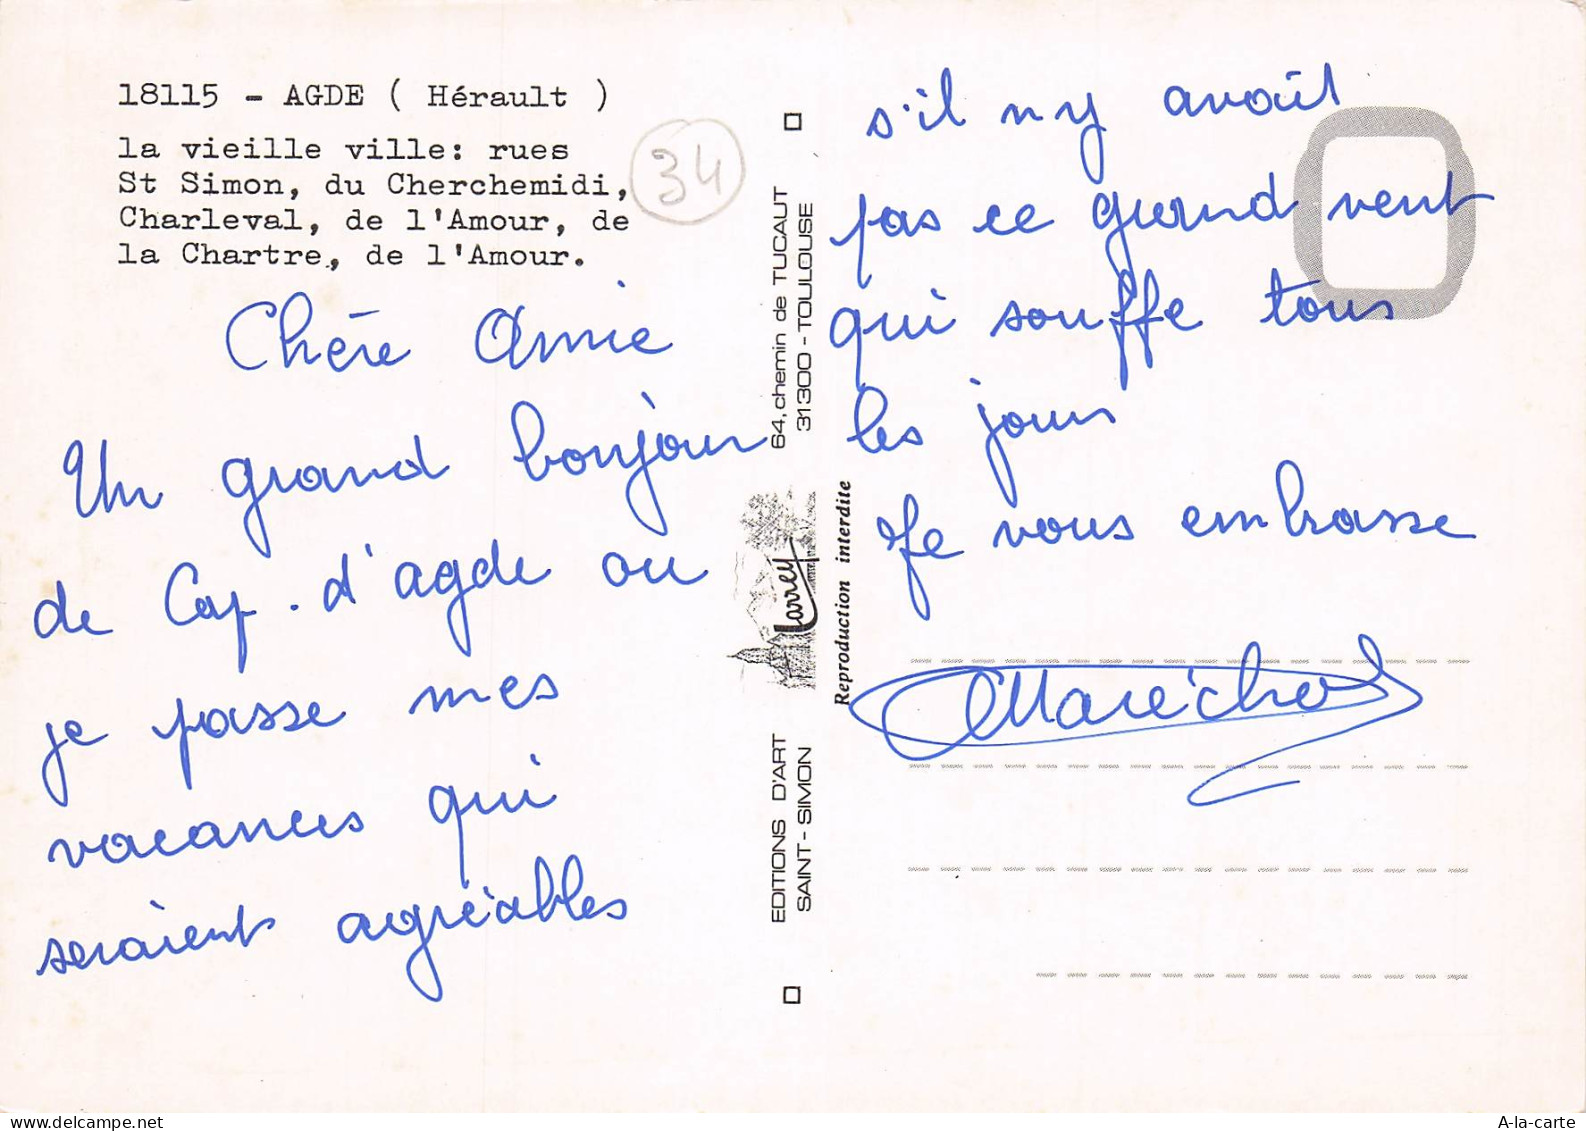 18115 - AGDE ( Hérault )
la vieille ville: rues
St Simon, du Cherchemidi,
Charleval, de l'Amour, de
la Chartre, de l'Amour.
34
Chère Amie
Un grand bonjour
de Cap. d'agde ou
je passe mes
vacances qui
seraient agréables
64, chemin de TUCAUT
31300 - TOULOUSE
Larrey
Reproduction interdite
EDITIONS D'ART
SAINT - SIMON
s'il n y avait
pas ce grand vent
qui souffe tous
les jours
Je vous embrasse
Maréchal
A-la-carte